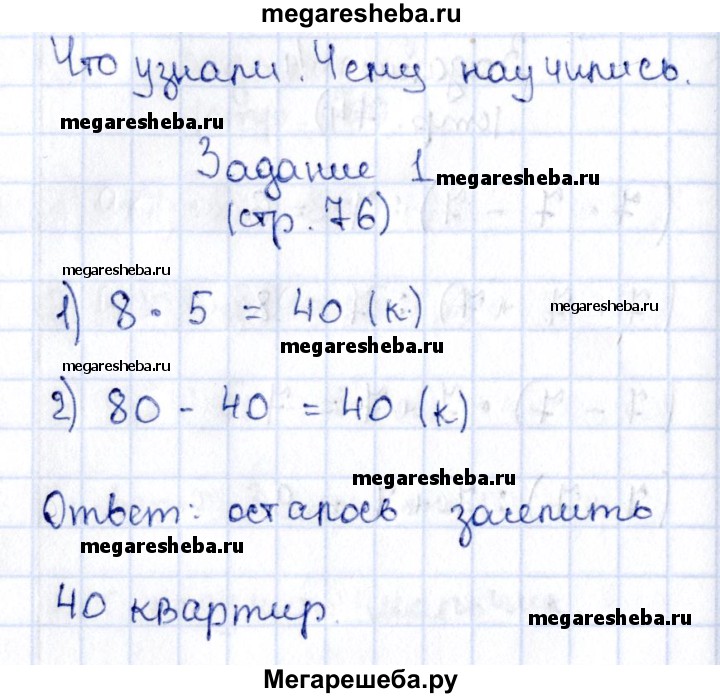 megaresheba.ru
Что узнали. Чему научились.
megaresheba.ru
Задание 1
megaresheba.ru
(стр. 76)
megaresheba.ru
1) 8 · 5 = 40 (к.)
megaresheba.ru
megaresheba.ru
megaresheba.ru
2) 80 - 40 = 40 (к)
megaresheba.ru
Ответ: осталось заселить
megaresheba.ru
40 квартир.
megaresheba.ru
Мегарешеба.ру